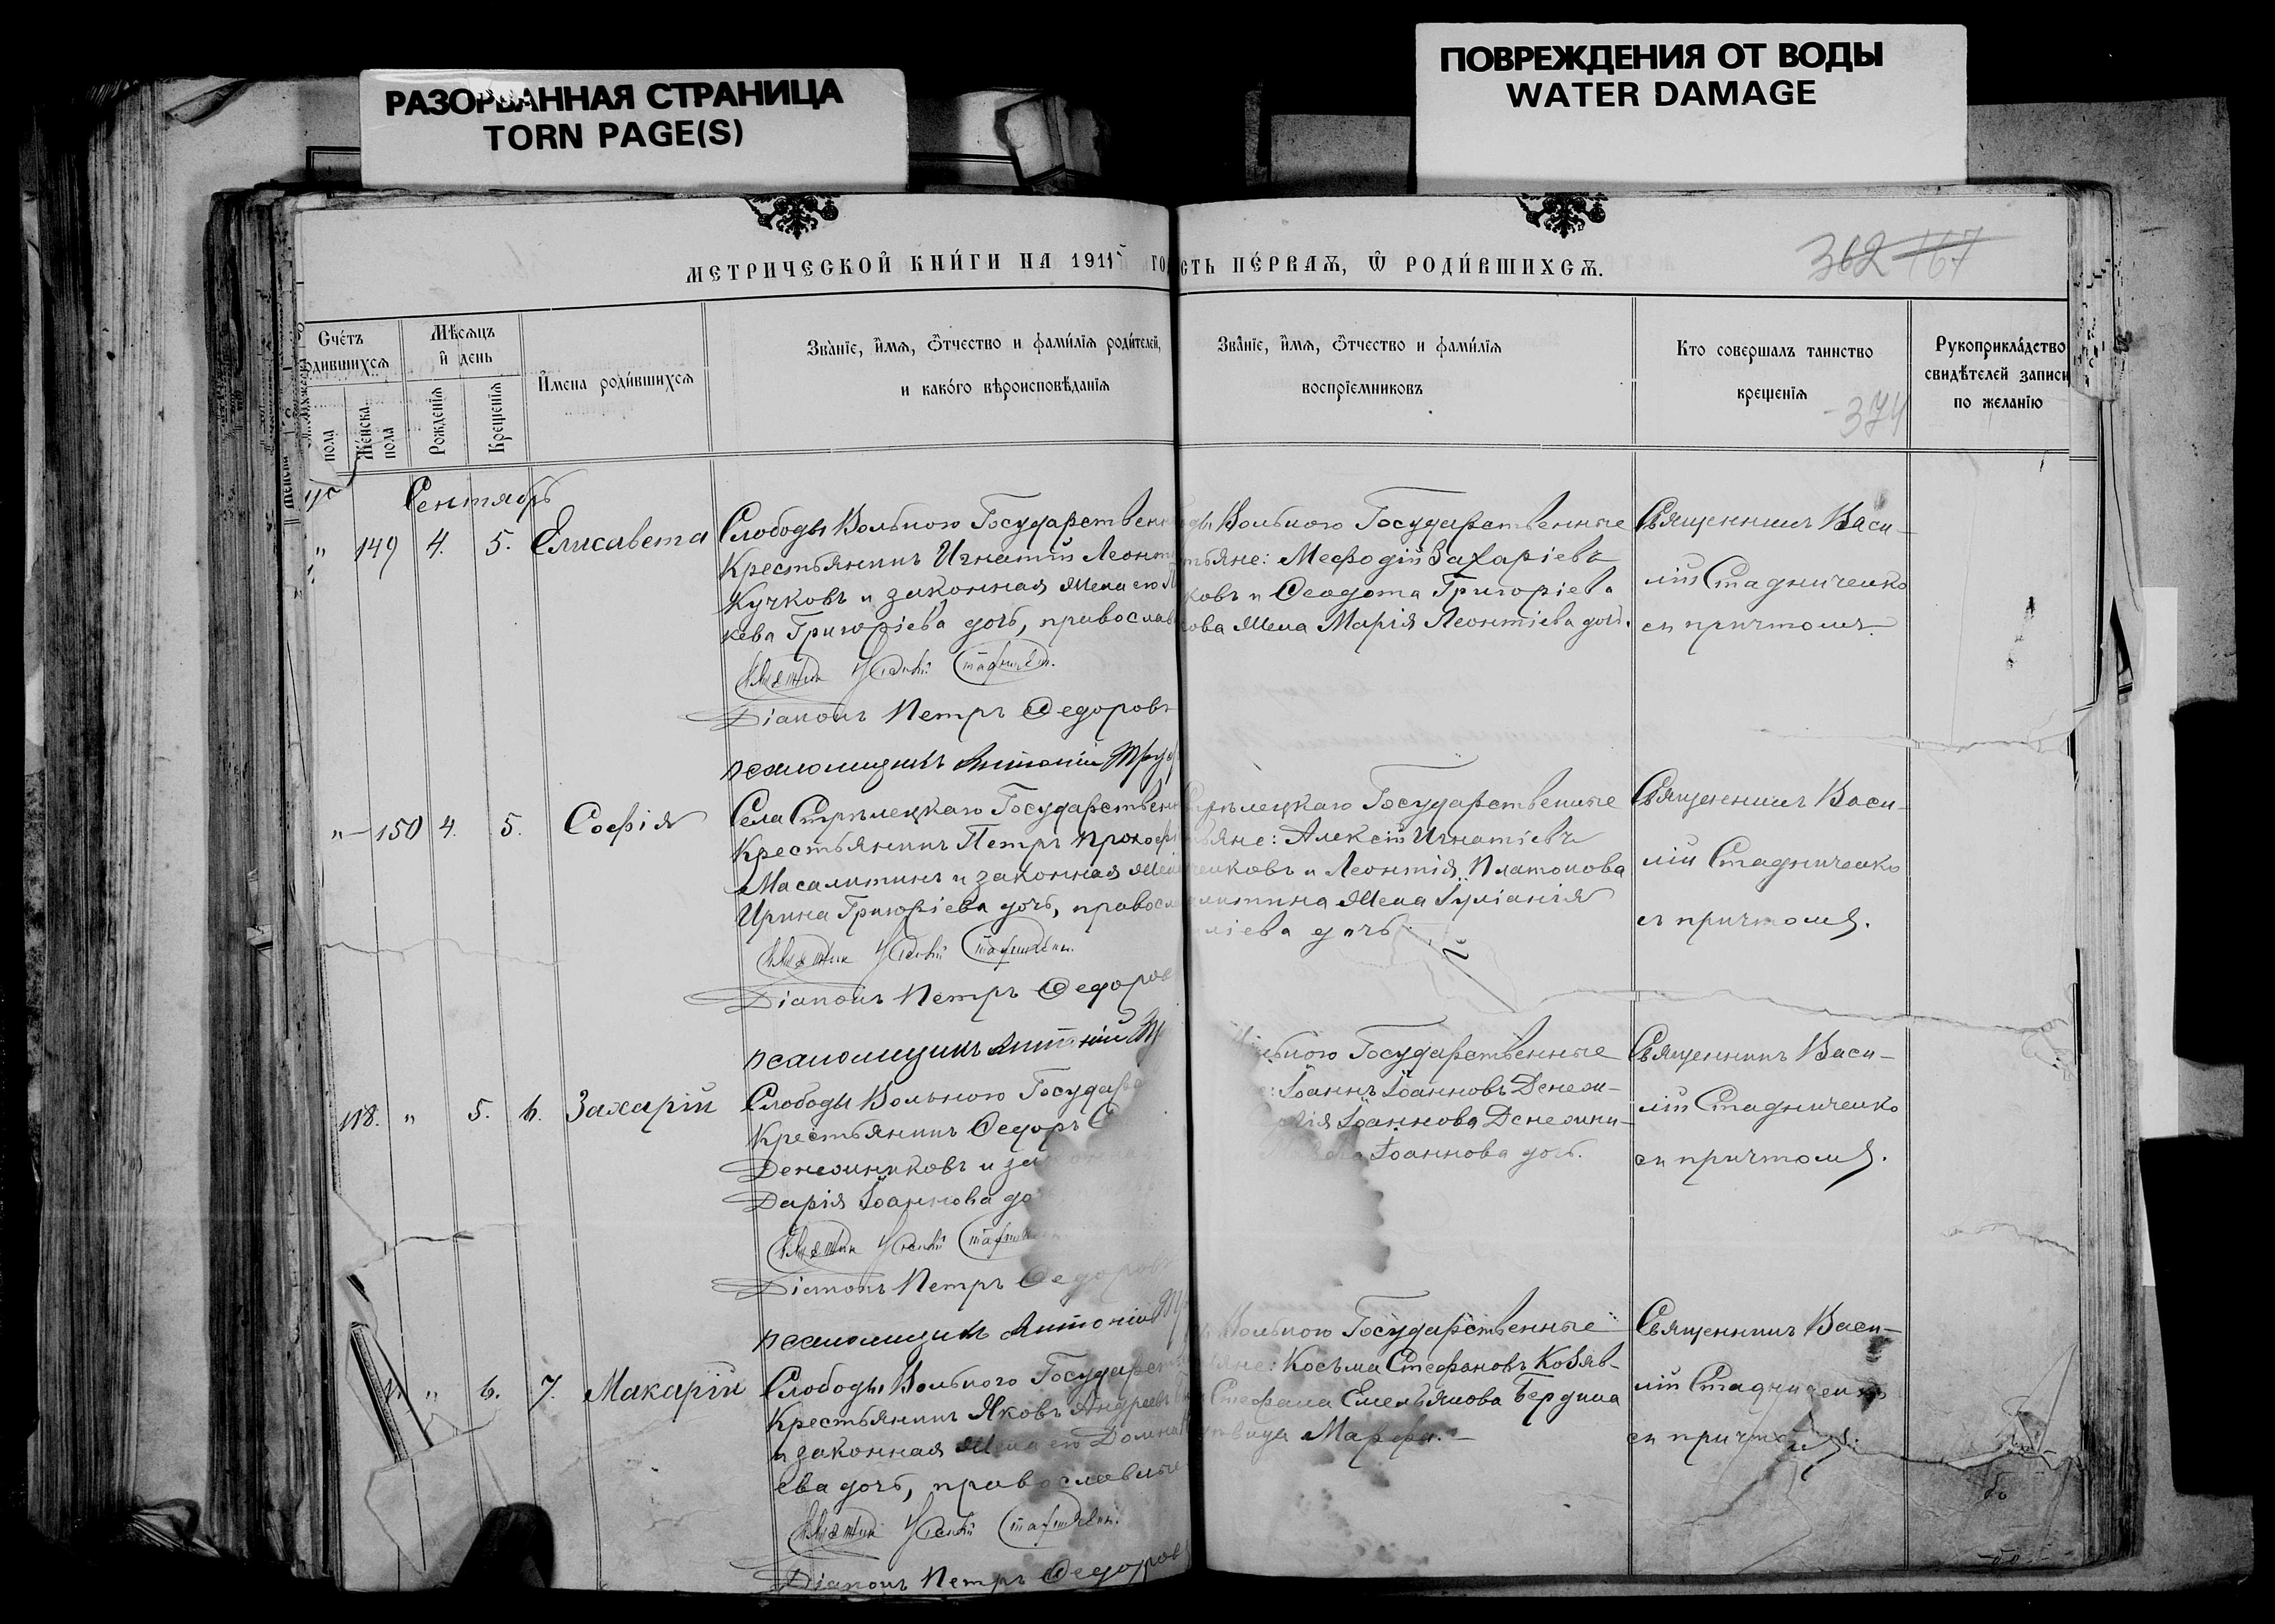 РАЗОРВАННАЯ СТРАНИЦА
TORN PAGE(S)
ПОВРЕЖДЕНИЯ ОТ ВОДЫ
WATER DAMAGE
МЕТРИЧЕСКОЙ КНИ́ГИ НА 1911 ГО
СТЬ ПЕ́РВАѦ, Ѿ РОДИ́ВШИХСѦ.
362 167
374
Счéтъ
одившихсѧ
пола
Женска
пола
Мѣсѧцъ
и день
Рожденїѧ
Крещенїѧ
Имена роди́вшихсѧ
Зва́нїе, имѧ, Ѻтчество и фами́лїѧ роди́телей,
и како́го вѣроисповѣданїѧ
Зва́нїе, имѧ, Ѻтчество и фами́лїѧ
воспрїемниковъ
Кто совершалъ таинство
крещенїѧ
Рукоприкла́дство
свидѣтелей записи
по желанїю
Сентябрь
" 149 4. 5. Елисавета
Слободы Вольного Государствен
Крестьянинъ Игнатій Леонт
Кучковъ и законная жена его
кева Григоріева дочь, православ
Діаконъ Петръ Федоровъ
псаломщикъ Антоній Тру
Вольного Государственные
тьяне: Мефодій Захаріевъ
ковъ и Феодота Григоріева
кова жена Марія Леонтіева дочь.
Священникъ Васи-
лій Стадниченко
съ причтомъ.
" 150 4. 5. Софія
Села Стрѣлецкаго Государствен
Крестьянинъ Петръ Прокоф
Масалитинъ и законная жен
Ирина Григоріева дочь, правосл
Діаконъ Петръ Федоров
псаломщикъ Антоній Т
трѣлецкаго Государственные
ьяне: Алексій Игнатіевъ
ченковъ и Леонтія Платонова
литина жена Іуліанія
ліева дочь.
Священникъ Васи-
лій Стадниченко
съ причтомъ.
118. " 5. 6. Захарій
Слободы Вольного Государ
Крестьянинъ Федоръ
Денежниковъ и за
Дарія Іоаннова до
Діаконъ Петръ Федоровъ
псаломщикъ Антоній Т
льного Государственные
: Іоаннъ Іоанновъ Денеж-
Іоаннова Денежни-
Іоаннова дочь.
Священникъ Васи-
лій Стадниченко
съ причтомъ.
" 6. 7. Макарій
Слободы Вольного Государст
Крестьянинъ Яковъ Андреевъ
и законная жена его Домна
ева дочь, православные
Діаконъ Петръ Федоров
Вольного Государственные
яне: Косьма Стефановъ Козяв-
Стефана Емельянова Бердина
Марфа.
Священникъ Васи-
лій Стадниченко
съ причтомъ.